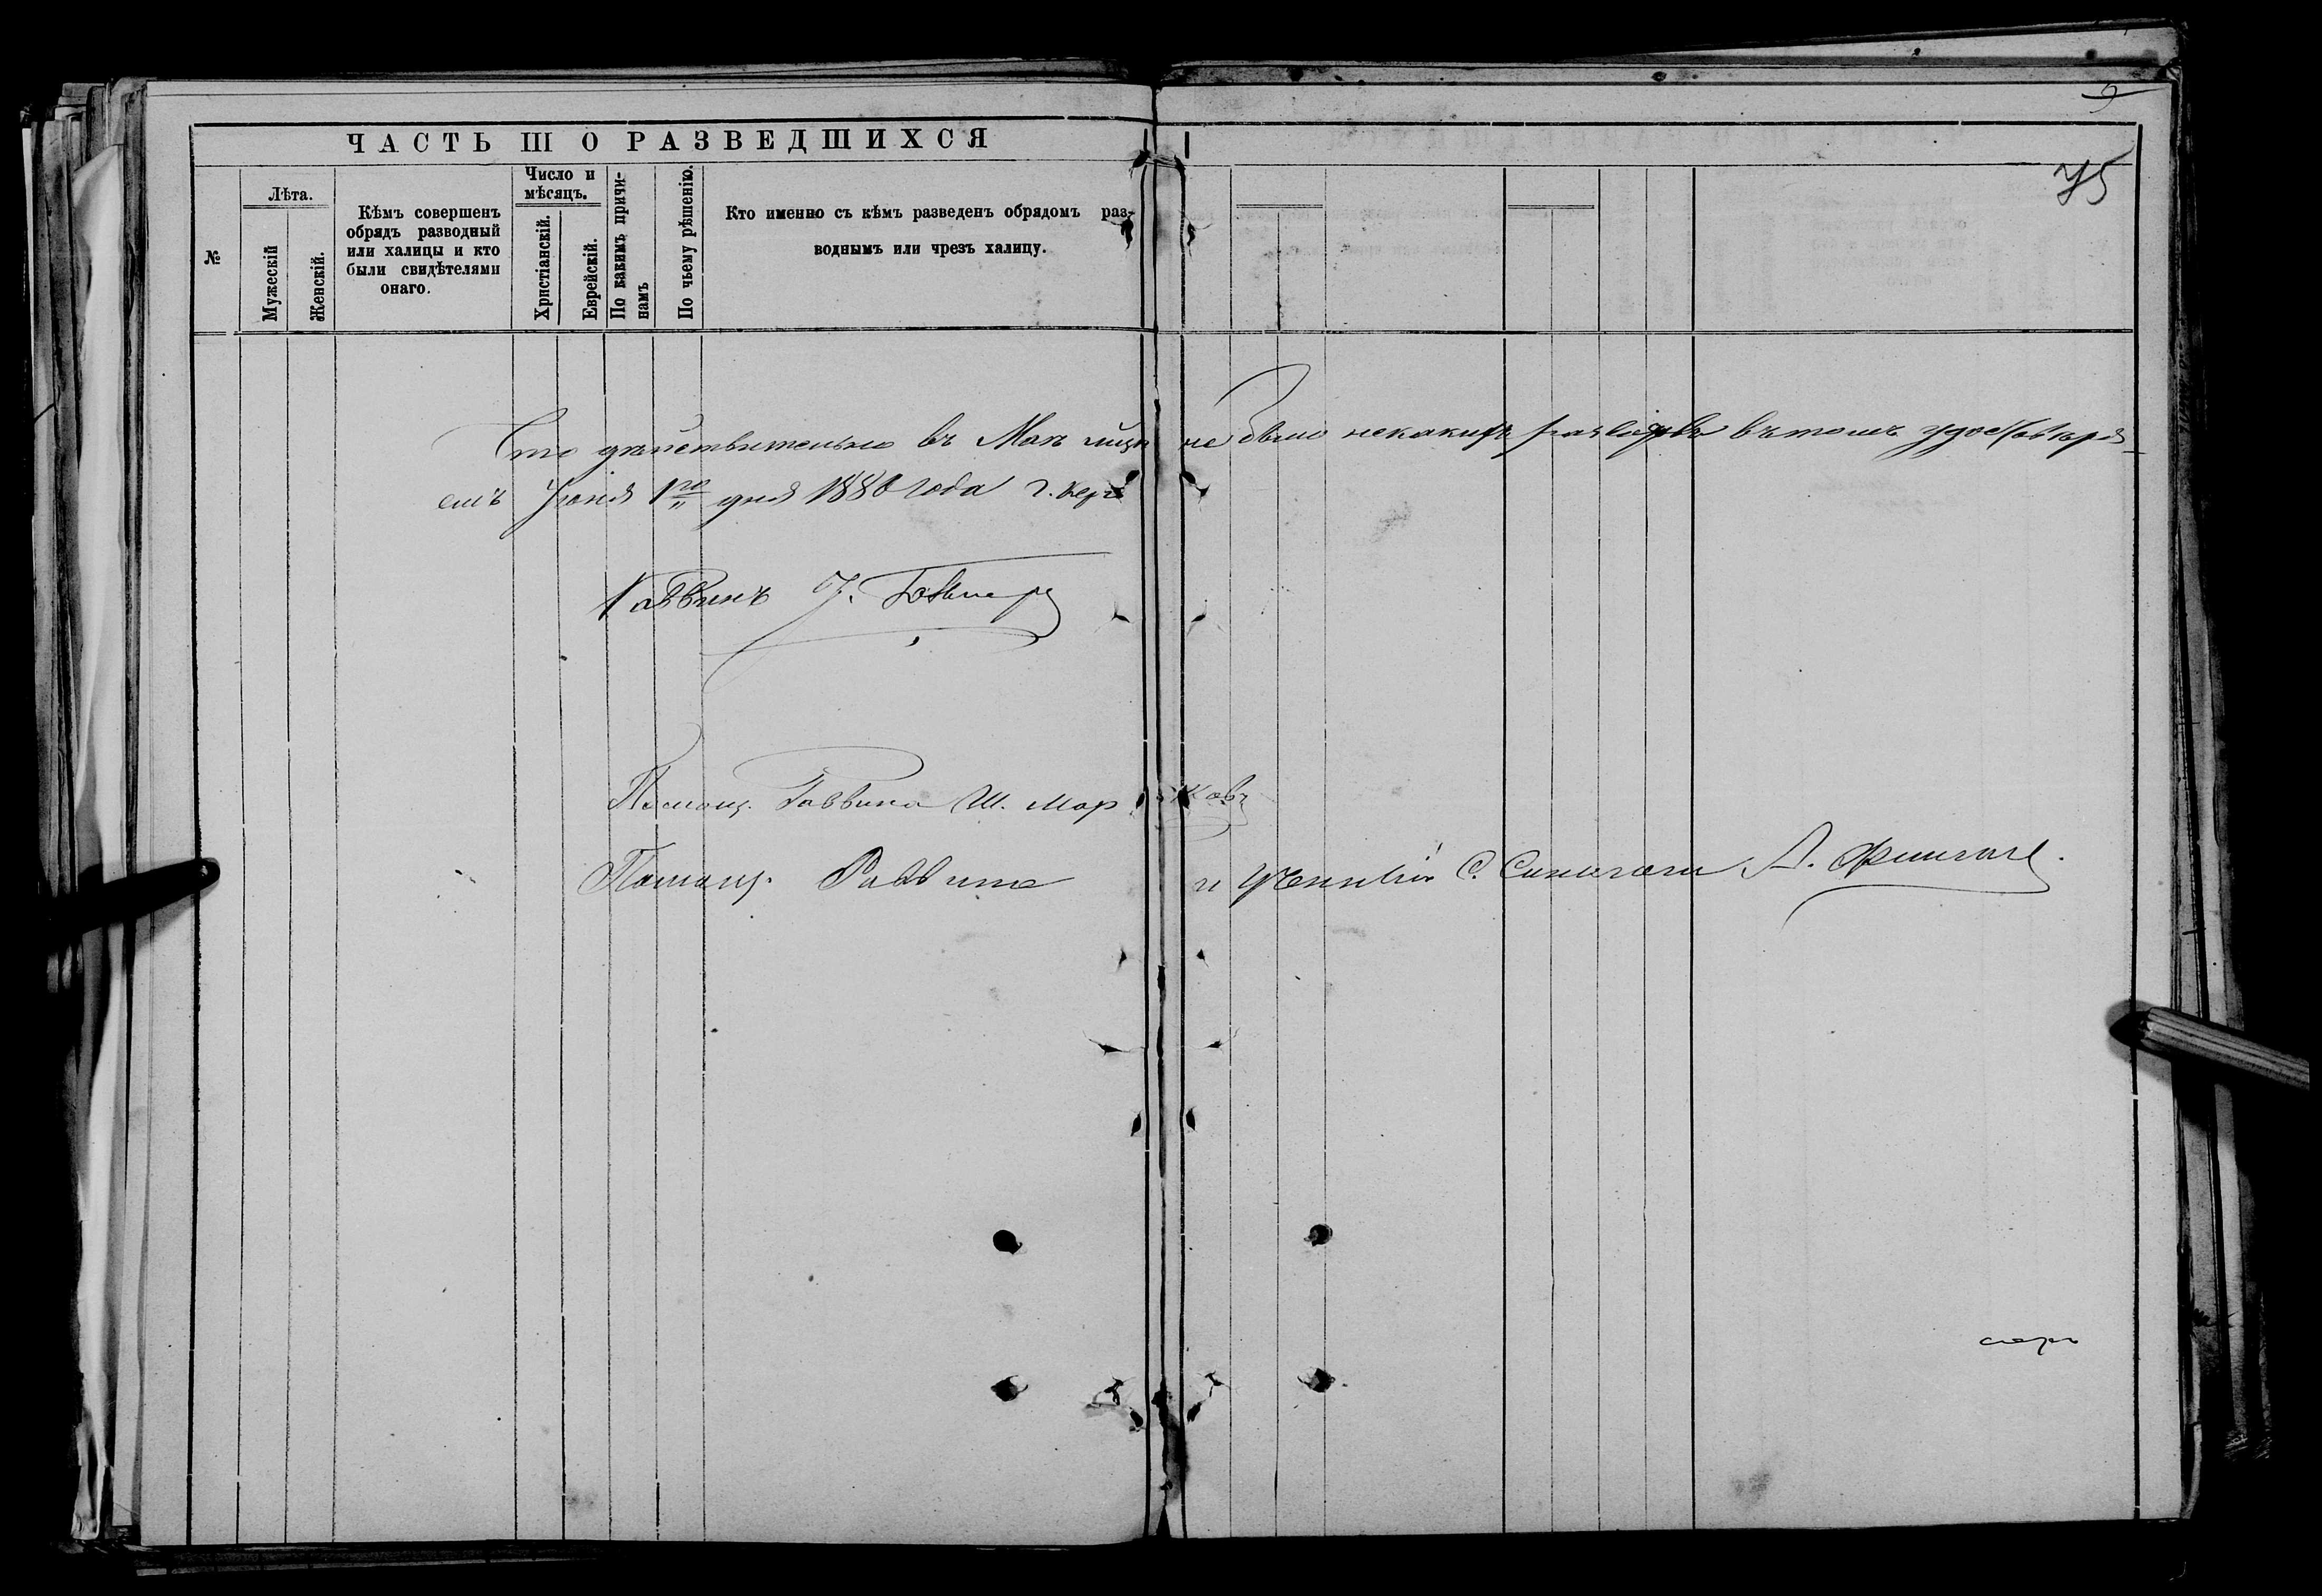 5
75
ЧАСТЬ III О РАЗВЕДШИХСЯ
№
Лѣта.
Мужескій
Женскій.
Кѣмъ совершенъ
обрядъ разводный
или халицы и кто
были свидѣтелями
онаго.
Число и
мѣсяцъ.
Христіанскій.
Еврейскій.
По какимъ причи-
намъ
По чьему рѣшенію.
Кто именно съ кѣмъ разведенъ обрядомъ раз-
воднымъ или чрезъ халицу.
Что дѣйствительно въ Маѣ мцѣ не было некакихъ разводовъ въ томъ удостовѣря-
емъ Іюня 1го дня 1880 года г. Керчь
Раввинъ
Помощ. Раввина Ш.
Помощ. Раввина и Ученный С. А.